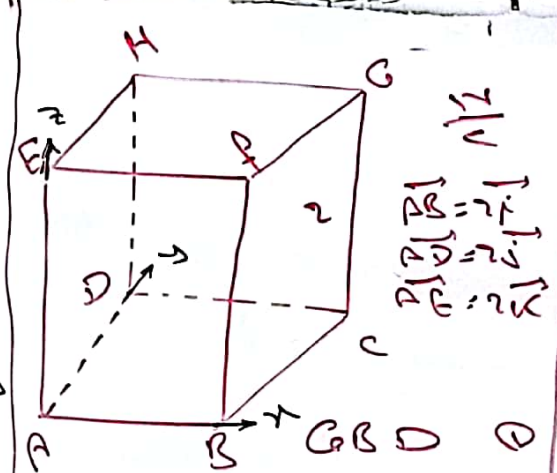 H
G
z
E
F
2
AB = 2i
AD = 2j
AE = 2k
D
C
A
B
GBD